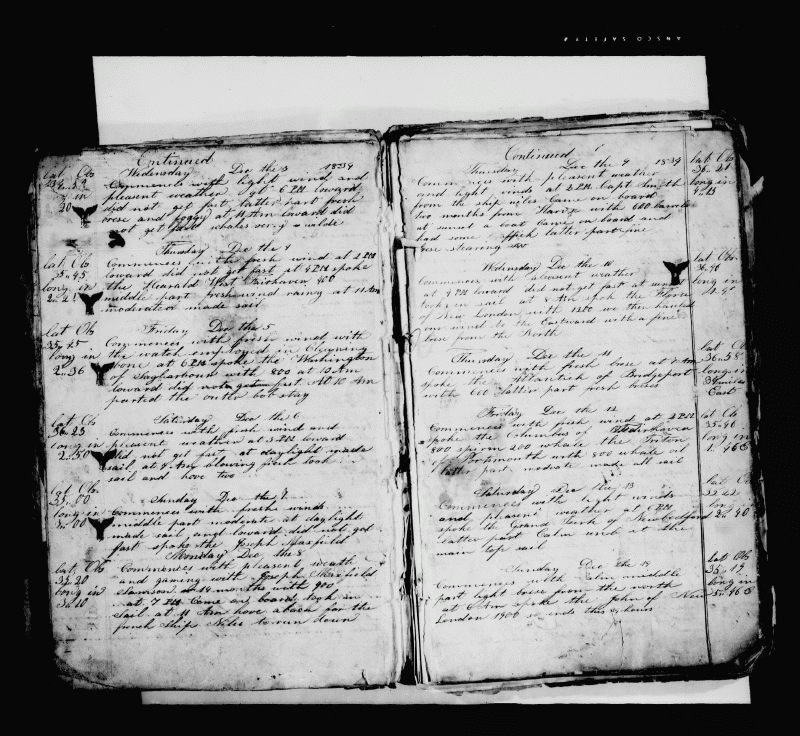 ANSCO SAFETY
Continued
Wednesday Dec the 3 1834
lat Ob
Commences with light winds and
pleasant weather at 6 PM lowered
long in
did not get fast latter part fresh
brese and foggy at 11 AM lowered did
not get fast whales very
Thursday Dec the 4
Commences with fresh wind at 2 PM
lat Ob
lowered did not get fast at 4 PM spoke
35..45
the Hearald West Fairhaven 400
long in
middle part fresh wind rainy at 11 AM
moderated made sail
Friday Dec the 5
lat Ob
Commences with fresh winds with
35..45
the watch employed in cleaning
long in
bone at 6 PM spoke the Washington
2..36
of Sagharbour with 800 at 10 AM
lowered did not get fast At 10 AM
parted the outer bobstay
Saturday Dec the 6
lat Ob
Commences with fresh wind and
36..23
pleasent weather at 3 PM lowered
long in
did not get fast at daylight made
2..50
sail at 8 AM blowing fresh took in
sail and hove two
lat Ob
Sunday Dec the 7
35..00
Commences with fresh winds
long in
middle part moderate at daylight
3..00
made sail and lowered did not get
fast spoke the Joseph Maxfield
Monday Dec the 8
lat Ob
Commences with pleasent weath
35..20
and gaming with Joseph Maxfield
long in
14 months with 900
3..10
at 7 PM Came on board took in
sail at 4 AM hove aback for the
french Ship Niles to run down
Continued
Thursday Dec the 9 1834
lat Ob
Commences with pleasent weather
36..21
and light winds at 2 PM Capt Smith
long in
from the ship niles Came on board
two months from with 600 barrels
at sunset a boat Came on board and
had some latter part fine
brese stearing
Wednesday Dec the 10
lat Ob
Commences with pleasent weather
long in
at 4 PM lowered did not get fast at sunset
took in sail at 4 AM spok the Flora
of New London with 1250 we then hauled
our wind to the Eastward with a fine
brese from the North
Thursday Dec the 11
lat Ob
Commences with fresh brese at 7 AM
36..38
spoke the Atlantick of Bridgeport
long in
with 600 latter part fresh breses
East
Friday Dec the 12
lat Ob
Commences with fresh wind at 2 PM
spoke the Columbus of Fairhaven
long in
800 sperm 200 whale the Triton
of with 800 whale oil
latter part modrate made all sail
Saturday Dec the 13
lat Ob
Commences with light winds
and pleasent weather at 6 PM
long in
spoke the Grand Turk of Newbedford
latter part Calm at the
main top sail
Sunday Dec the 14
lat Ob
Commences with Calm middle
35..19
part light brese from the north
long in
at 6 AM spoke the John of New
London 1900 so ends this 24 hours